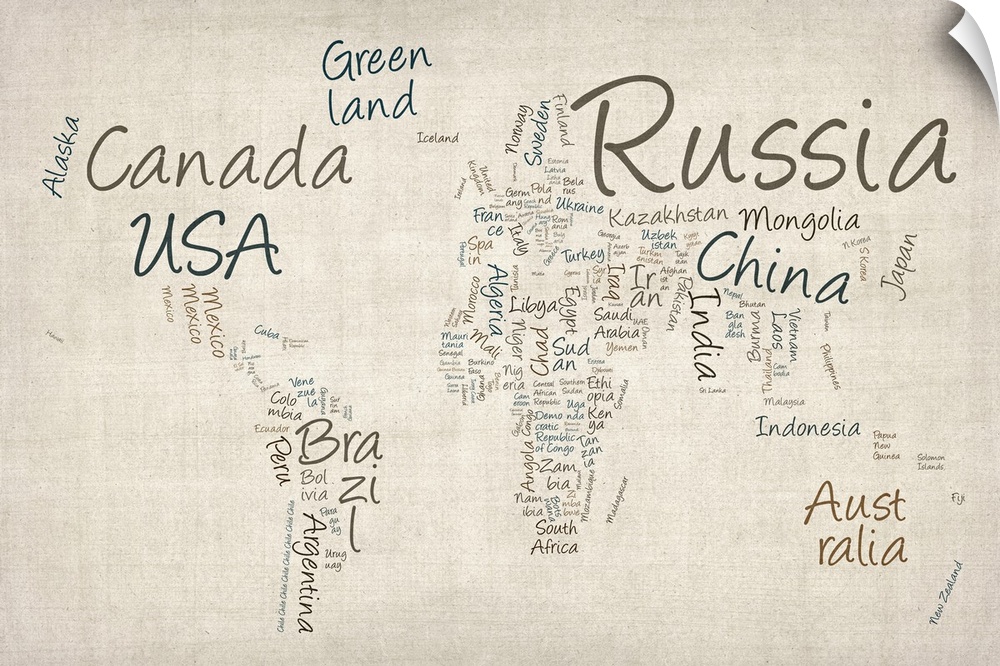 Green
land
Alaska
Canada
USA
Iceland
Norway
Sweden
Finland
Russia
Estonia
Latvia
United
Kingdom
Ireland
Germ
any
Pola
nd
Bela
rus
Ukraine
Fran
ce
Spa
in
Portugal
Italy
Rom
ania
Greece
Turkey
Georgia
Kazakhstan
Mongolia
Uzbek
istan
Turkm
enistan
Tajik
istan
Afghan
ist
an
Pakistan
China
N Korea
S Korea
Japan
Mexico
Mexico
Mexico
Mexico
Hawaii
Cuba
Dominican
Republic
Morocco
Algeria
Tunisia
Malta
Cyprus
Libya
Egypt
Iraq
Ir
an
Saudi
Arabia
UAE
Oman
Yemen
India
Nepal
Bhutan
Ban
gla
desh
Burma
Laos
Vietnam
Thailand
Cam
bodia
Taiwan
Philippines
Sri Lanka
Malaysia
Mauri
tania
Senegal
Gambia
Guinea
Mali
Burkino
Faso
Ghana
Liberia
Niger
Nig
eria
Chad
Sud
an
Eritrea
Djibouti
Ethi
opia
Somalia
Central
African
Republic
Southern
Sudan
Cam
eroon
Uga
nda
Ken
ya
Congo
Demo
cratic
Republic
of Congo
Tan
zan
ia
Angola
Zam
bia
Malawi
Mozambique
Madagascar
Nam
ibia
Bots
wana
Zi
mba
bwe
South
Africa
Vene
zue
la
Guyana
Sur
in
am
Colo
mbia
Ecuador
Peru
Bra
zi
l
Bol
ivia
Para
gu
ay
Chile Chile Chile Chile Chile Chile Chile
Argentina
Urug
uay
Indonesia
Papua
New
Guinea
Solomon
Islands
Fiji
Aust
ralia
New Zealand